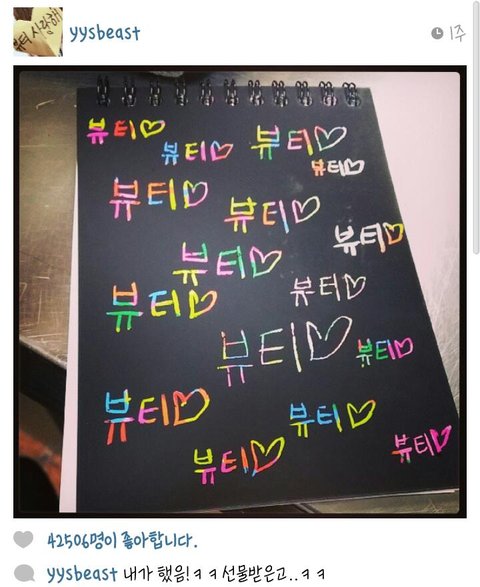 뷰티 사랑해
yysbeast
1주
뷰티♡
뷰티♡
뷰티♡
뷰티♡
뷰티♡
뷰티♡
뷰티♡
뷰티♡
뷰티♡
뷰티♡
뷰티♡
뷰티♡
뷰티♡
뷰티♡
뷰티♡
뷰티♡
42506명이 좋아합니다.
yysbeast 내가 했음!ㅋㅋ선물받은고..ㅋㅋ